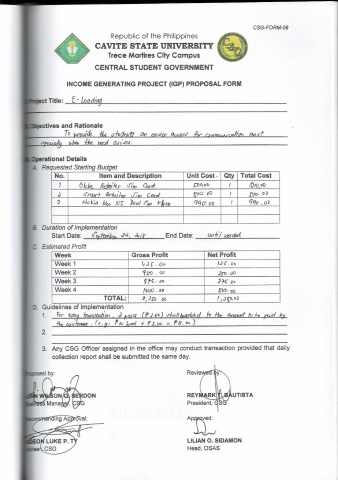 CSG-FORM-06
Republic of the Philippines
CAVITE STATE UNIVERSITY
Trece Martires City Campus
CENTRAL STUDENT GOVERNMENT
INCOME GENERATING PROJECT (IGP) PROPOSAL FORM
Project Title: E-Loading
Objectives and Rationale
To provide the students an easier access for communication most
especially when the need arises.
Operational Details
A. Requested Starting Budget
No. Item and Description Unit Cost Qty Total Cost
1 Globe Retailer Sim Card 500.00 1 500.00
2 Smart Retailer Sim Card 500.00 1 500.00
3 Nokia 105 Dual Sim Phone 990.00 1 990.00
B. Duration of Implementation
Start Date: September 24, End Date: until needed
C. Estimated Profit
Week Gross Profit Net Profit
Week 1 125.00
Week 2 250.00
Week 3
Week 4 1000.00 500.00
TOTAL: 1,250.00
D. Guidelines of Implementation
1. For every transaction, 2 pesos (₱2.00) shall be added to the amount to be paid by
the customer.
2.
3. Any CSG Officer assigned in the office may conduct transaction provided that daily
collection report shall be submitted the same day.
Proposed by: Reviewed by:
WILSON Q. SERDON REYMARK T. BAUTISTA
Business Manager, CSG President, CSG
Recommending Approval: Approved:
GIDEON LUKE P. TY LILIAN O. SIDAMON
Adviser, CSG Head, OSAS